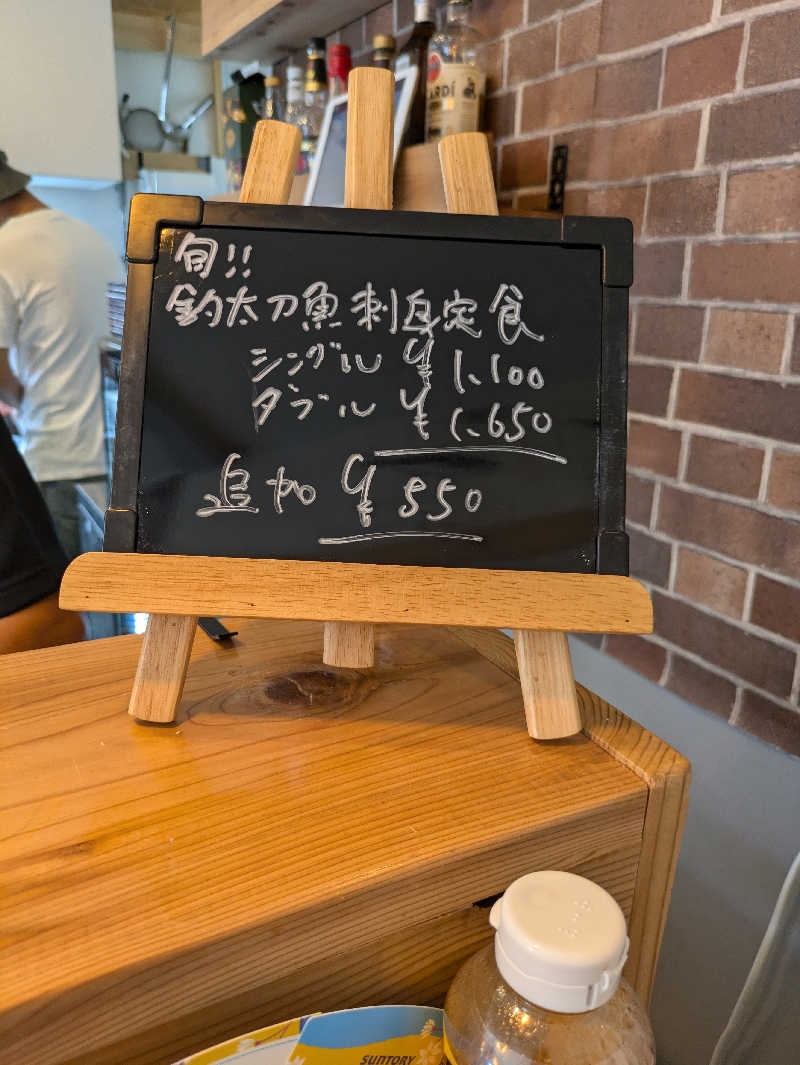 ARDÍ
旬!!
釣太刀魚刺身定食
シングル ¥1,100
ダブル ¥1,650
追加 ¥550
SUNTORY